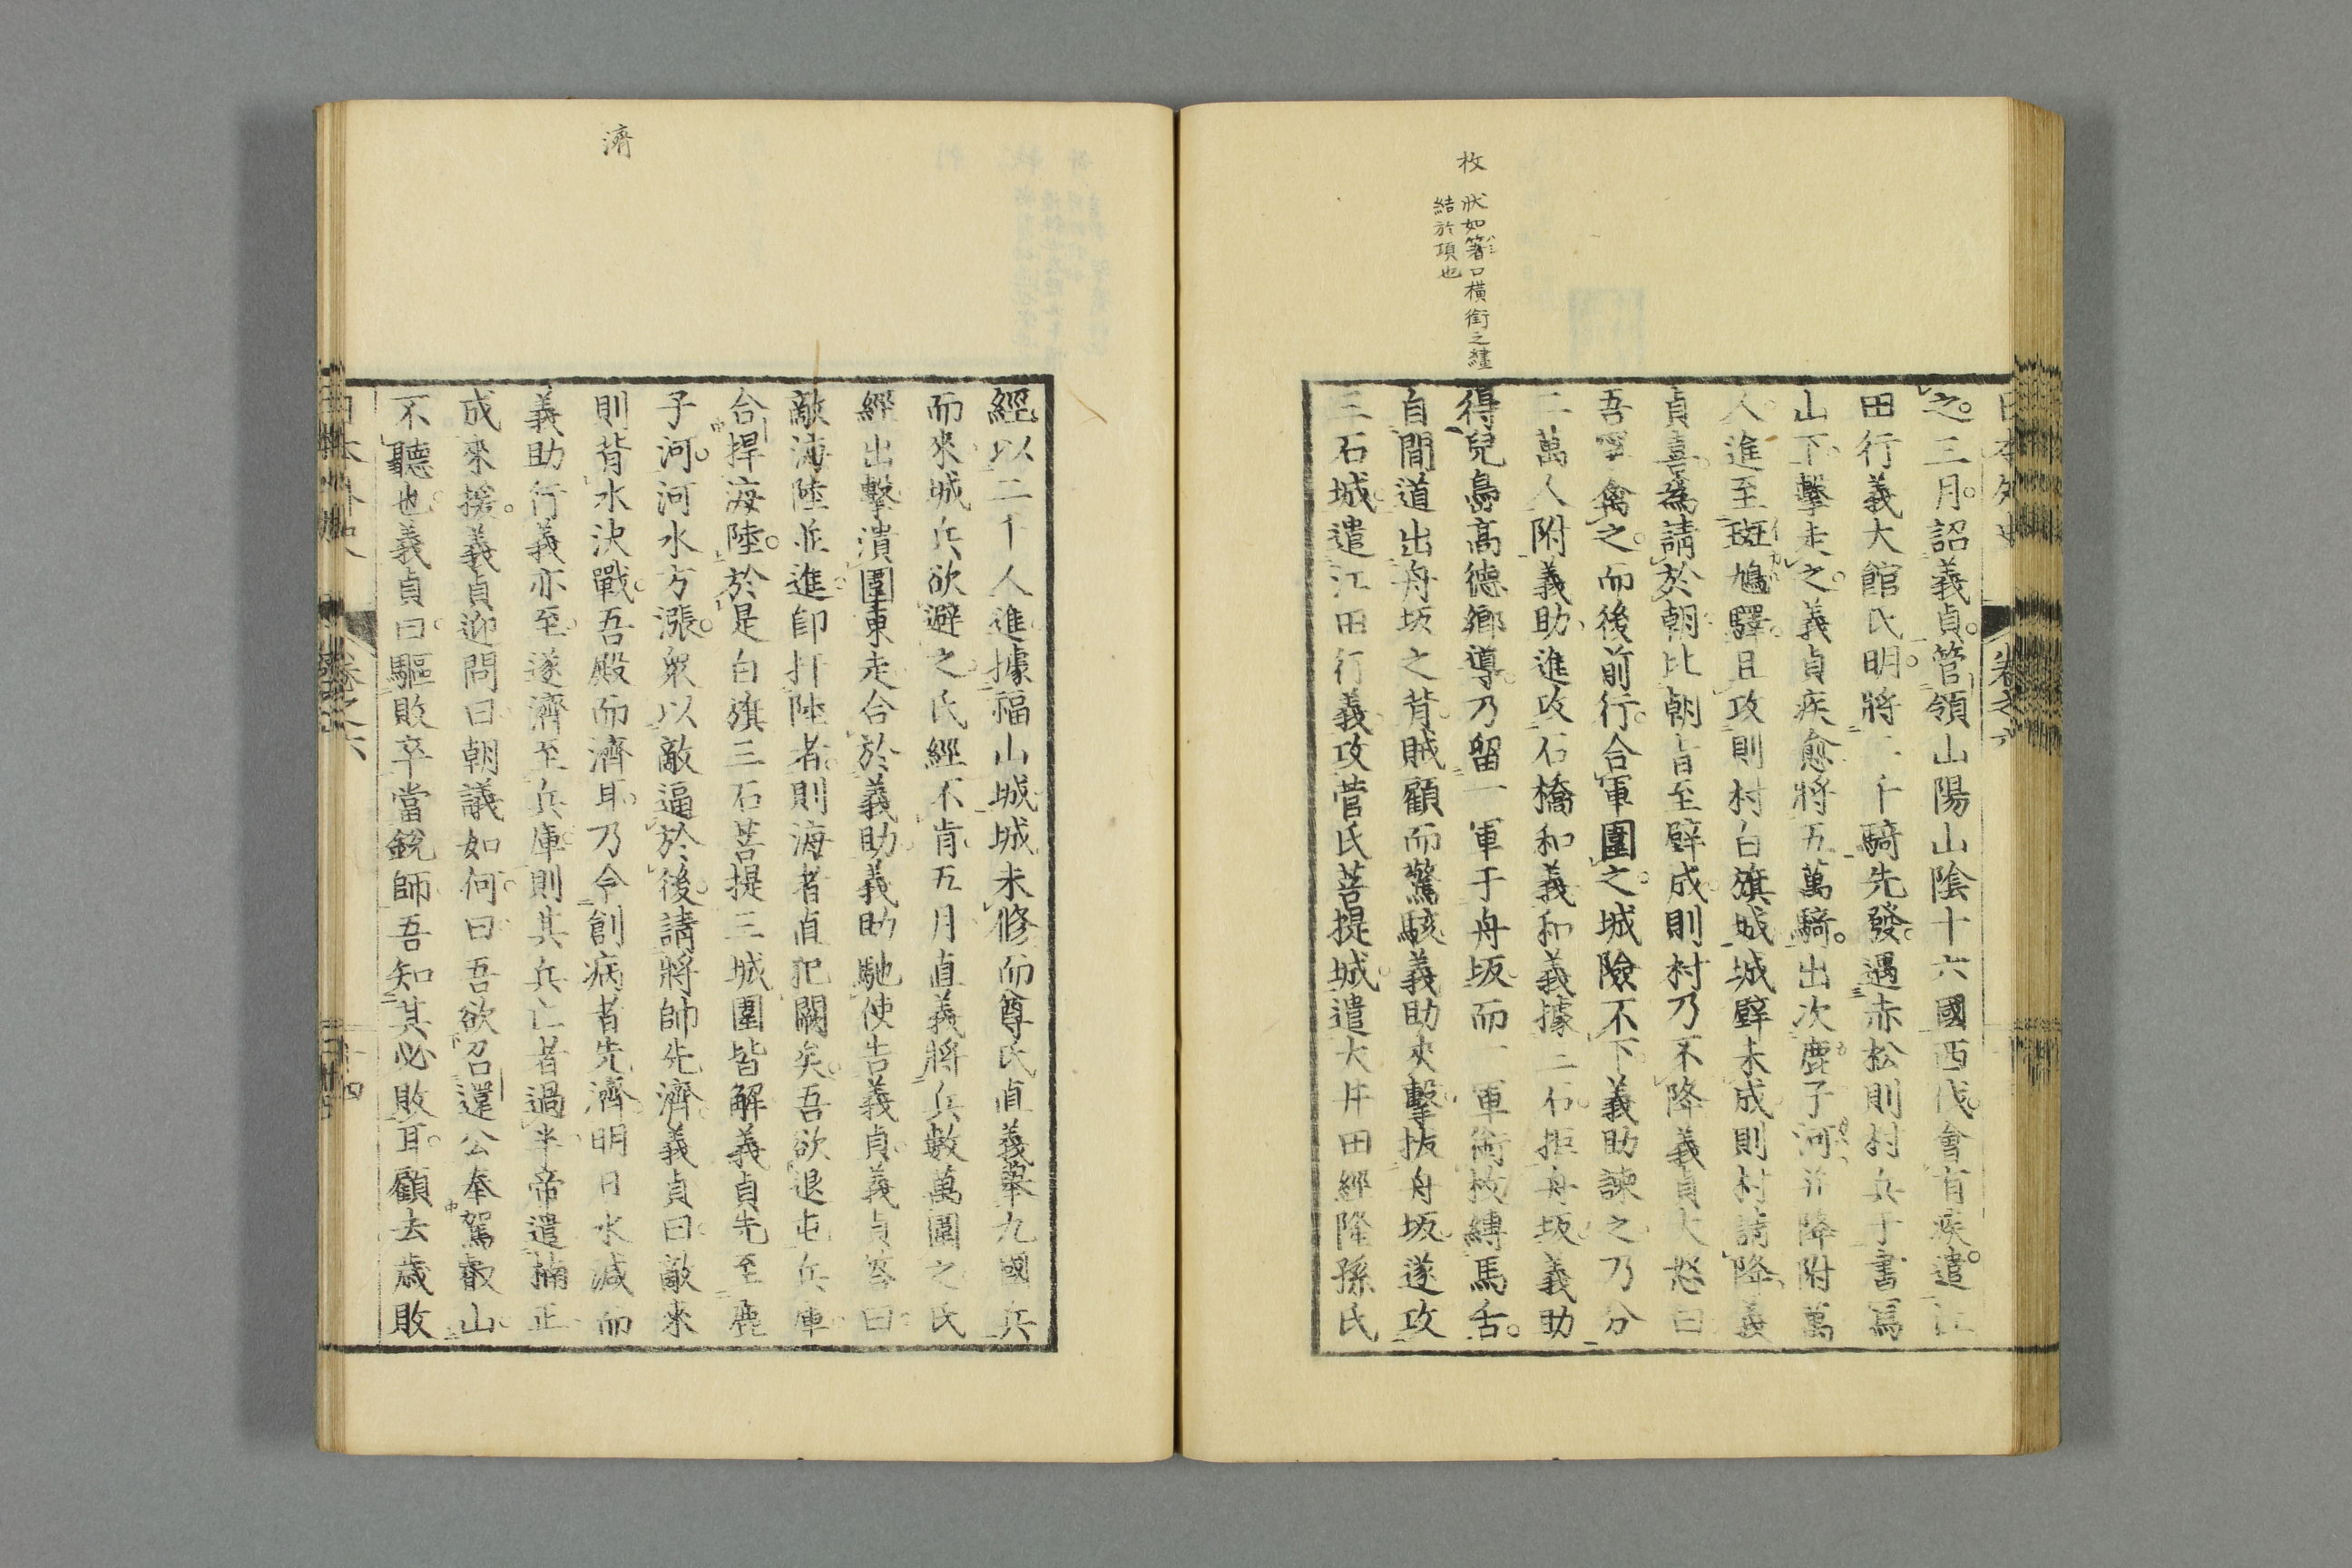 枚 狀如箸口橫銜之繣
結於項也
日本外史 卷之六
之。三月。詔義貞。管領山陽山陰十六國西伐。會有疾。遣江
田行義大館氏明。將二千騎先發。遇赤松則村兵于書寫
山下。擊走之。義貞疾愈。將五萬騎。出次鹿子河。并降附萬
人。進至斑鳩驛。且攻則村白旗城。城壁未成。則村請降。義
貞喜。為請於朝。比朝旨至。壁成。則村乃不降。義貞大怒曰
吾寧禽之而後前行。合軍圍之。城險不下。義助諫之。乃分
二萬人附義助。進攻石橋和義。和義據三石。拒舟坂。義助
得兒島高德鄉導。乃留一軍于舟坂。而一軍銜枚縛馬舌。
自間道出舟坂之背。賊顧而驚駭。義助夾擊拔舟坂。遂攻
三石城。遣江田行義。攻菅氏菩提城。遣大井田經隆孫氏
濟
經。以二千人進據福山城。城未修。而尊氏直義舉九國兵
而來。城兵欲避之。氏經不肯。五月直義將兵數萬圍之。氏
經出擊。潰圍東走。合於義助。義助馳使告義貞。義貞答曰
敵海陸並進。卽扞陸者。則海者直犯闕矣。吾欲退屯兵庫
合捍海陸。於是白旗三石菩提三城圍皆解。義貞先至鹿
子河。河水方漲。衆以敵逼於後。請將帥先濟。義貞曰。敵來
則背水決戰。吾殿而濟耳。乃令創病者先濟。明日水減而
義助行義亦至。遂濟至兵庫。則其兵亡者過半。帝遣楠正
成來援。義貞迎問曰。朝議如何。曰吾欲召還公奉駕叡山。
不聽也。義貞曰。驅敗卒當銳師。吾知其必敗耳。顧去歲敗
日本外史 卷之六 二十四